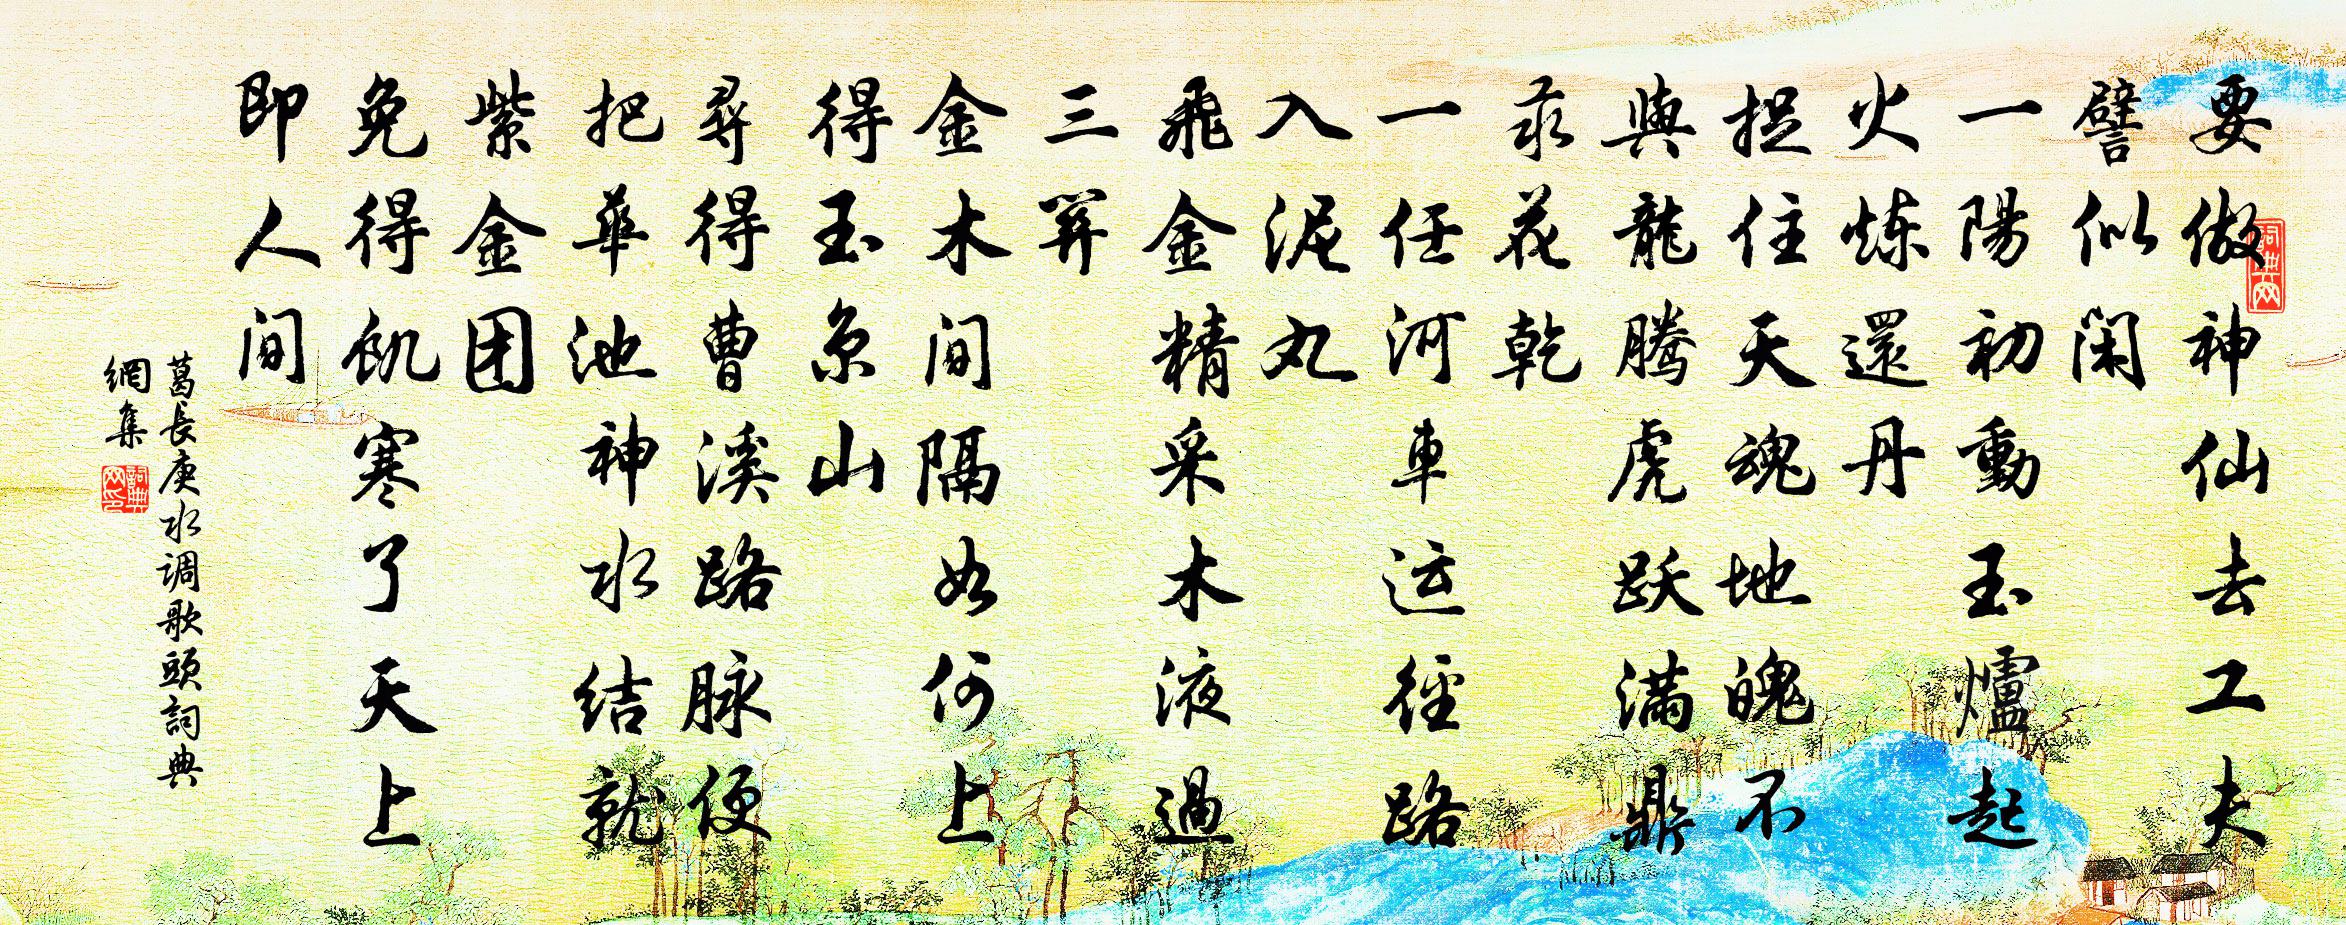 要做神仙去工夫
譬似闲
一陽初動玉爐起
火炼還丹
捉住天魂地魄不
與龍腾虎跃满鼎
汞花乾
一任河车运径路
入泥丸
飛金精采木液過
三関
金木间隔如何上
得玉京山
尋得曹溪路脉便
把華池神水结就
紫金团
免得飢寒了天上
即人间
葛長庚水调歌頭詞典
網集
詞典网
詞典网印